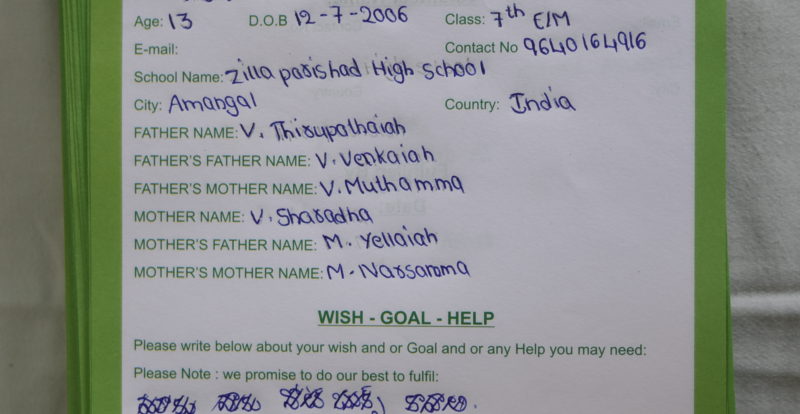 Age: 13 D.O.B 12-7-2006 Class: 7th E/M
E-mail: Contact No 9640164916
School Name: Zilla parishad High school
City: Amangal Country: India
FATHER NAME: V. Thirupathaiah
FATHER'S FATHER NAME: V. Venkaiah
FATHER'S MOTHER NAME: V. Muthamma
MOTHER NAME: V. Sharadha
MOTHER'S FATHER NAME: M. Yellaiah
MOTHER'S MOTHER NAME: M. Narsamma
WISH - GOAL - HELP
Please write below about your wish and or Goal and or any Help you may need:
Please Note : we promise to do our best to fulfil: